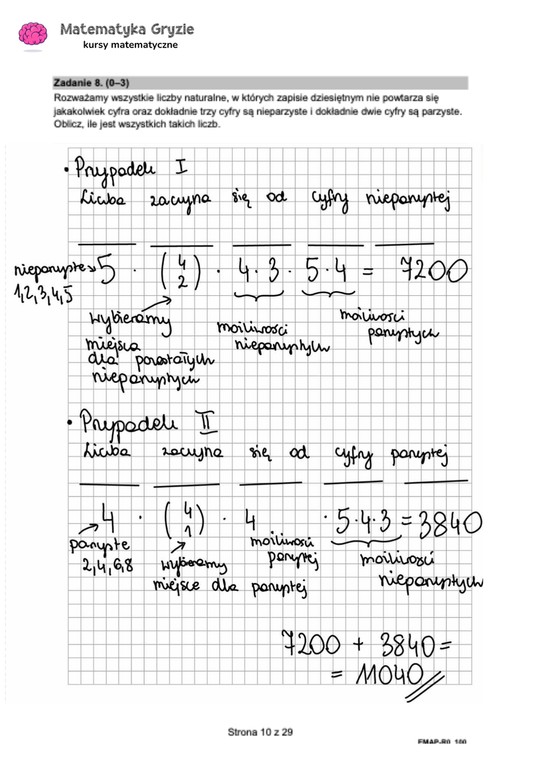 Matematyka Gryzie
kursy matematyczne
Zadanie 8. (0–3)
Rozważamy wszystkie liczby naturalne, w których zapisie dziesiętnym nie powtarza się
jakakolwiek cyfra oraz dokładnie trzy cyfry są nieparzyste i dokładnie dwie cyfry są parzyste.
Oblicz, ile jest wszystkich takich liczb.
• Przypadek I
Liczba zaczyna się od cyfry nieparzystej
nieparzyste 5 · (4 2) · 4·3 · 5·4 = 7200
1,2,3,4,5
wybieramy miejsca dla pozostałych nieparzystych
możliwości nieparzystych
możliwości parzystych
• Przypadek II
Liczba zaczyna się od cyfry parzystej
4 · (4 1) · 4 · 5·4·3 = 3840
parzyste 2,4,6,8
wybieramy miejsce dla parzystej
możliwości parzystej
możliwości nieparzystych
7200 + 3840 =
= 11040
Strona 10 z 29
EMAP-R0_100